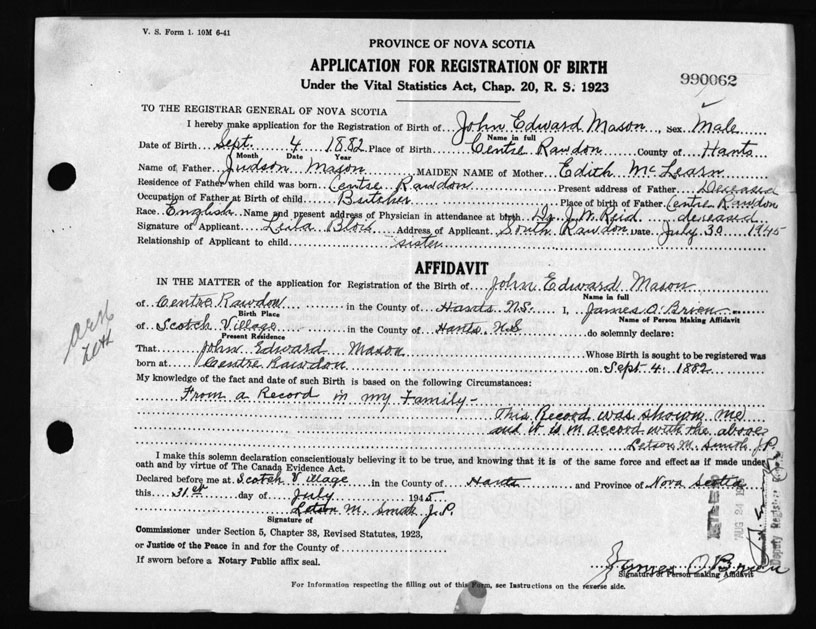 V. S. Form 1. 10M 6-41
PROVINCE OF NOVA SCOTIA
APPLICATION FOR REGISTRATION OF BIRTH
Under the Vital Statistics Act, Chap. 20, R. S. 1923
990062
TO THE REGISTRAR GENERAL OF NOVA SCOTIA
I hereby make application for the Registration of Birth of John Edward Mason, Sex Male
Name in full
Date of Birth Sept. 4 1882 Place of Birth Centre Rawdon County of Hants
Month Date Year
Name of Father Judson Mason MAIDEN NAME of Mother Edith McLearn
Residence of Father when child was born Centre Rawdon Present address of Father Deceased
Occupation of Father at Birth of child Butcher Place of birth of Father Centre Rawdon
Race English Name and present address of Physician in attendance at birth Dr. J. M. Reid deceased
Signature of Applicant Leila Blois Address of Applicant South Rawdon Date July 30 1945
Relationship of Applicant to child sister
AFFIDAVIT
IN THE MATTER of the application for Registration of the Birth of John Edward Mason
Name in full
of Centre Rawdon in the County of Hants N.S. I, James O'Brien
Birth Place Name of Person Making Affidavit
of Scotch Village in the County of Hants. N.S do solemnly declare:
Present Residence
That John Edward Mason Whose Birth is sought to be registered was
born at Centre Rawdon on Sept. 4. 1882
My knowledge of the fact and date of such Birth is based on the following Circumstances:
From a Record in my Family-
This Record was shown me
and it is in accord with the above
Letson M. Smith J.P.
I make this solemn declaration conscientiously believing it to be true, and knowing that it is of the same force and effect as if made under
oath and by virtue of The Canada Evidence Act.
Declared before me at Scotch Village in the County of Hants and Province of Nova Scotia
this 31st day of July 1945.
Letson M. Smith J.P.
Signature of
Commissioner under Section 5, Chapter 38, Revised Statutes, 1923,
or Justice of the Peace in and for the County of
If sworn before a Notary Public affix seal.
James O'Brien
Signature of Person making Affidavit
For Information respecting the filling out of this Form, see Instructions on the reverse side.
AUG 24
Deputy Registrar